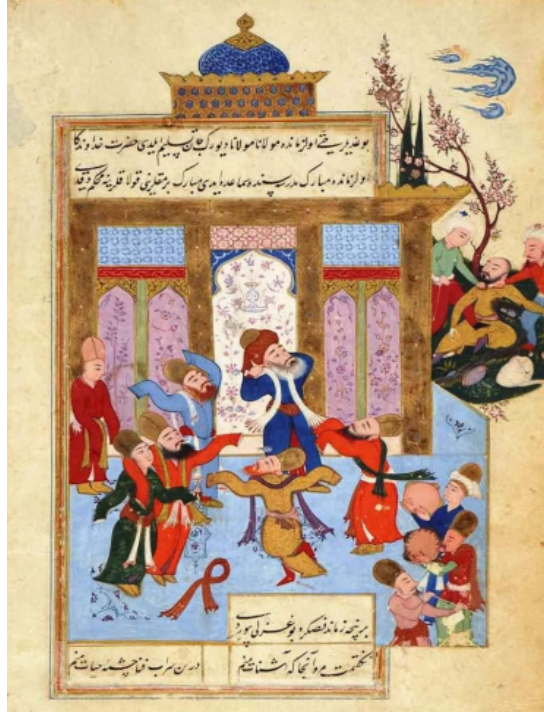 اولزمانده مولانا مولانا دیورك جان تسلیم ایلدی حضرت خداوندكا
اولزمانده مبارك مدرسه سنده سماعده ایدی مبارك برمقلرینی قولاقلرینه محكم قودی
بر نیچه زماندنصكره بو غزلی بیوردی
نگفتمت مرو آنجا كه آشنات منم درین سراب فنا چشمه حیات منم